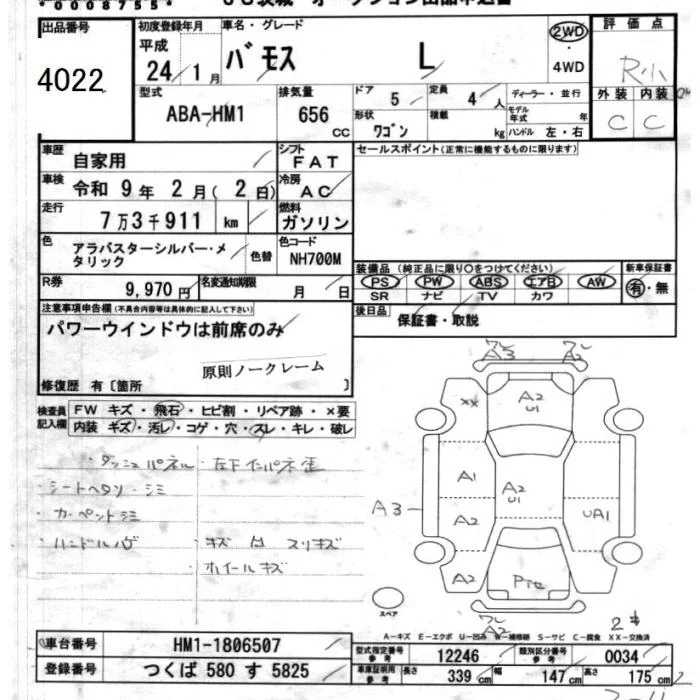 *00008755*
出品番号
4022
初度登録年月
平成
24 1月
車名・グレード
バモス L
2WD
・
4WD
評価点
R小
外装 内装
C C
型式
ABA-HM1
排気量
656 cc
ドア
5
定員
4 人
形状
ワゴン
積載
kg
ディーラー・並行
モデル年式 年
ハンドル 左・右
車歴
自家用
シフト
FAT
セールスポイント(正常に機能するものに限ります)
車検
令和 9年 2月( 2日)
冷房
AC
走行
7万3千911 km
燃料
ガソリン
色
アラバスターシルバー・メ
タリック
色替
色コード
NH700M
R券
9,970円
名変通知期限
月 日
装備品 (純正品に限り○をつけてください)
PS PW ABS エアB AW
SR ナビ TV カワ
新車保証書
有・無
後日品
保証書・取説
注意事項申告欄(不具合内容等は具体的に記入して下さい)
パワーウインドウは前席のみ
原則ノークレーム
修復歴 有〔箇所 〕
検査員
記入欄
FW キズ・飛石・ヒビ割・リペア跡・×要
内装 キズ・汚レ・コゲ・穴・スレ・キレ・破レ
・ダッシュパネル ・左下インパネ歪
・シートヘタリ・シミ
・カーペットシミ
・ハンドルハゲ ・キズ 凹 スリキズ
ホイールキズ
A3
XX
A2
U1
A1
A2
U1
A3
A2
UA1
A2
Pte
A2
スペア
A-キズ E-エクボ U-凹み W-補修跡 S-サビ C-腐食 XX-交換済
車台番号
HM1-1806507
登録番号
つくば 580 す 5825
型式指定番号
参考
12246
類別区分番号
参考
0034
車庫証明用
参考
長さ
339 cm
幅
147 cm
高さ
175 cm